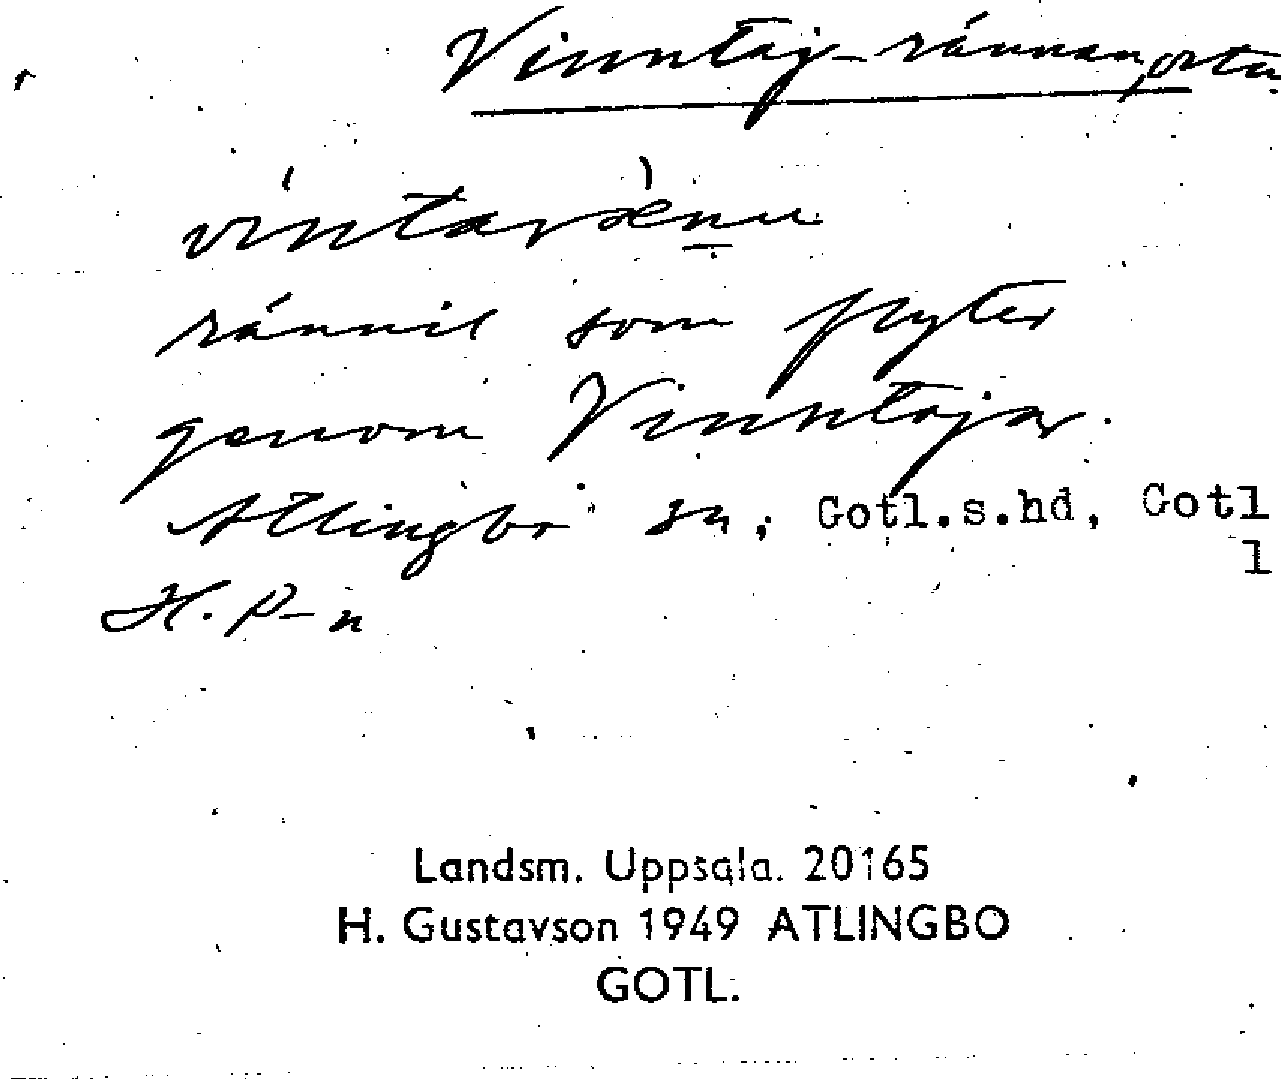 Vinntaj-rännan, ortn.
rännil som flyter
genom Vinntajar.
Atlingbo sn, Gotl.s.hd, Gotl
l
H. P-n
Landsm. Uppsala. 20165
H. Gustavson 1949 ATLINGBO
GOTL.